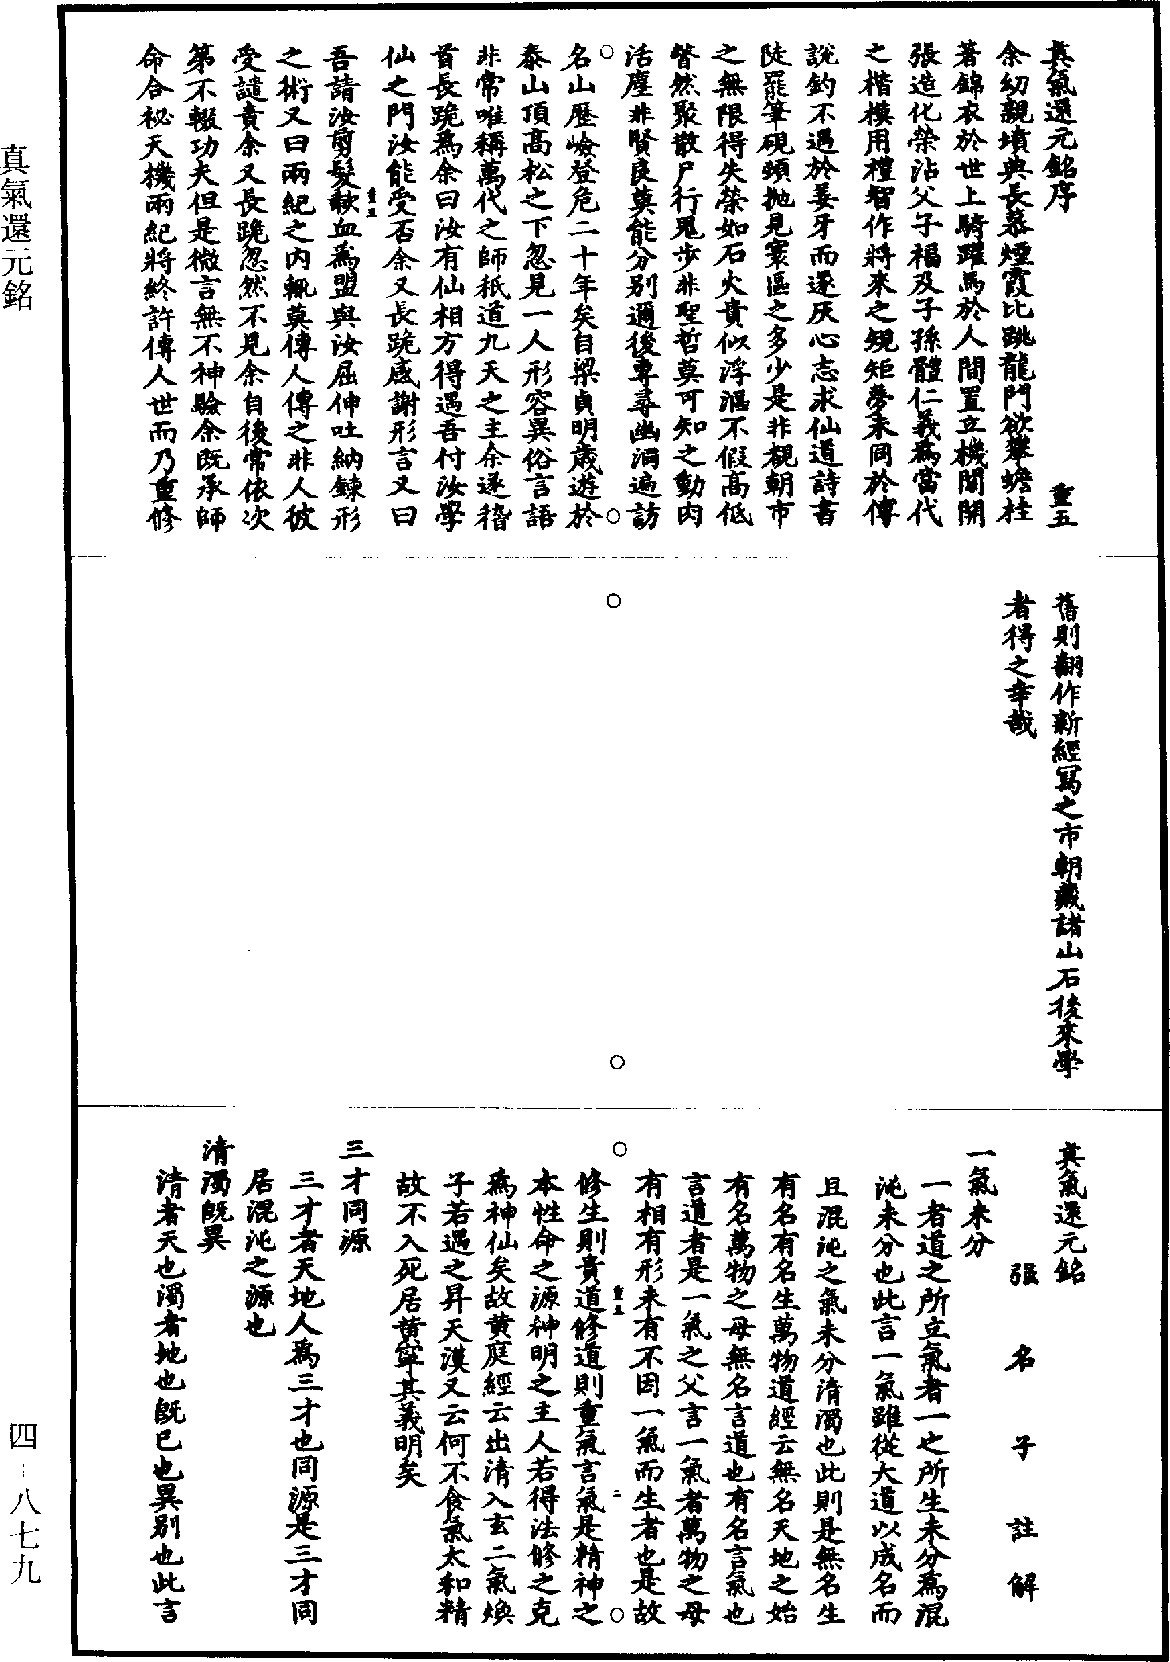 真氣還元銘序
重五
余幼親墳典長慕煙霞比跳龍門欲攀蟾桂
著錦衣於世上騎躍馬於人間置立機關開
張造化榮沾父子福及子孫體仁義為當代
之楷模用禮智作將來之規矩夢未同於傅
說釣不遇於姜牙而遂灰心志求仙道詩書
陡罷筆硯頓拋見寰區之多少是非覩朝市
之無限得失榮如石火貴似浮漚不假高低
瞥然聚散尸行鬼步非聖哲莫可知之動肉
活塵非賢良莫能分別邇後專尋幽洞遍訪
名山歷嶮登危二十年矣自梁貞明歲遊於
泰山頂高松之下忽見一人形容異俗言語
非常唯稱萬代之師祇道九天之主余遂稽
首長跪為余曰汝有仙相方得遇吾付汝學
仙之門汝能受否余又長跪感謝形言又曰
重五
吾請汝剪髮歃血為盟與汝屈伸吐納鍊形
之術又曰兩紀之內輒莫傳人傳之非人彼
受譴責余又長跪忽然不見余自後常依次
第不輟功夫但是微言無不神驗余既承師
命合祕天機兩紀將終許傳人世而乃重修
舊則翻作新經寫之市朝藏諸山石後來學
者得之幸哉
真氣還元銘
強名子註解
一氣未分
一者道之所立氣者一之所生未分為混
沌未分也此言一氣雖從大道以成名而
且混沌之氣未分清濁也此則是無名生
有名有名生萬物道經云無名天地之始
有名萬物之母無名言道也有名言氣也
言道者是一氣之父言一氣者萬物之母
有相有形未有不因一氣而生者也是故
重五
二
修生則貴道修道則重氣言氣是精神之
本性命之源神明之主人若得法修之克
為神仙矣故黃庭經云出清入玄二氣煥
子若遇之昇天漢又云何不食氣太和精
故不入死居黃寧其義明矣
三才同源
三才者天地人為三才也同源是三才同
居混沌之源也
清濁既異
清者天也濁者地也既已也異別也此言
真氣還元銘
四—八七九